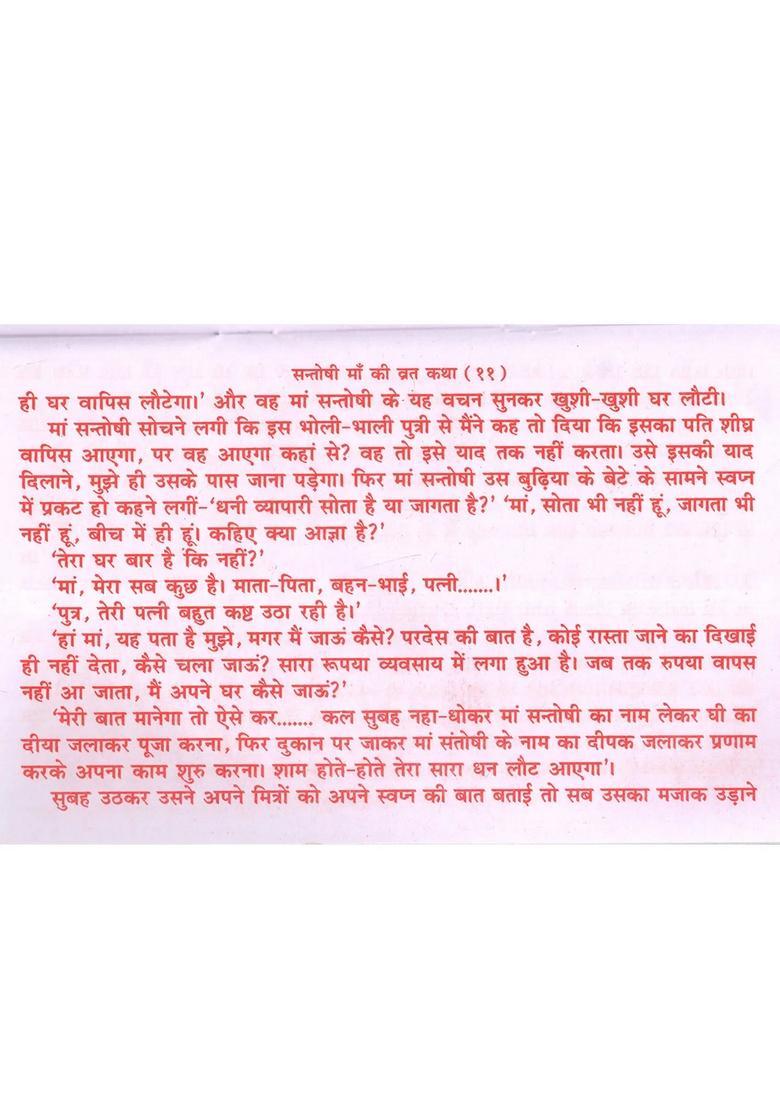 सन्तोषी माँ की व्रत कथा (११)
ही घर वापिस लौटेगा।' और वह मां सन्तोषी के यह वचन सुनकर खुशी-खुशी घर लौटी।
मां सन्तोषी सोचने लगी कि इस भोली-भाली पुत्री से मैंने कह तो दिया कि इसका पति शीघ्र
वापिस आएगा, पर वह आएगा कहां से? वह तो इसे याद तक नहीं करता। उसे इसकी याद
दिलाने, मुझे ही उसके पास जाना पड़ेगा। फिर मां सन्तोषी उस बुढ़िया के बेटे के सामने स्वप्न
में प्रकट हो कहने लगीं-'धनी व्यापारी सोता है या जागता है?' 'मां, सोता भी नहीं हूं, जागता भी
नहीं हूं, बीच में ही हूं। कहिए क्या आज्ञा है?'
'तेरा घर बार है कि नहीं?'
'मां, मेरा सब कुछ है। माता-पिता, बहन-भाई, पत्नी.......।'
'पुत्र, तेरी पत्नी बहुत कष्ट उठा रही है।'
'हां मां, यह पता है मुझे, मगर मैं जाऊं कैसे? परदेस की बात है, कोई रास्ता जाने का दिखाई
ही नहीं देता, कैसे चला जाऊं? सारा रूपया व्यवसाय में लगा हुआ है। जब तक रुपया वापस
नहीं आ जाता, मैं अपने घर कैसे जाऊं?'
'मेरी बात मानेगा तो ऐसे कर....... कल सुबह नहा-धोकर मां सन्तोषी का नाम लेकर घी का
दीया जलाकर पूजा करना, फिर दुकान पर जाकर मां संतोषी के नाम का दीपक जलाकर प्रणाम
करके अपना काम शुरु करना। शाम होते-होते तेरा सारा धन लौट आएगा'।
सुबह उठकर उसने अपने मित्रों को अपने स्वप्न की बात बताई तो सब उसका मजाक उड़ाने